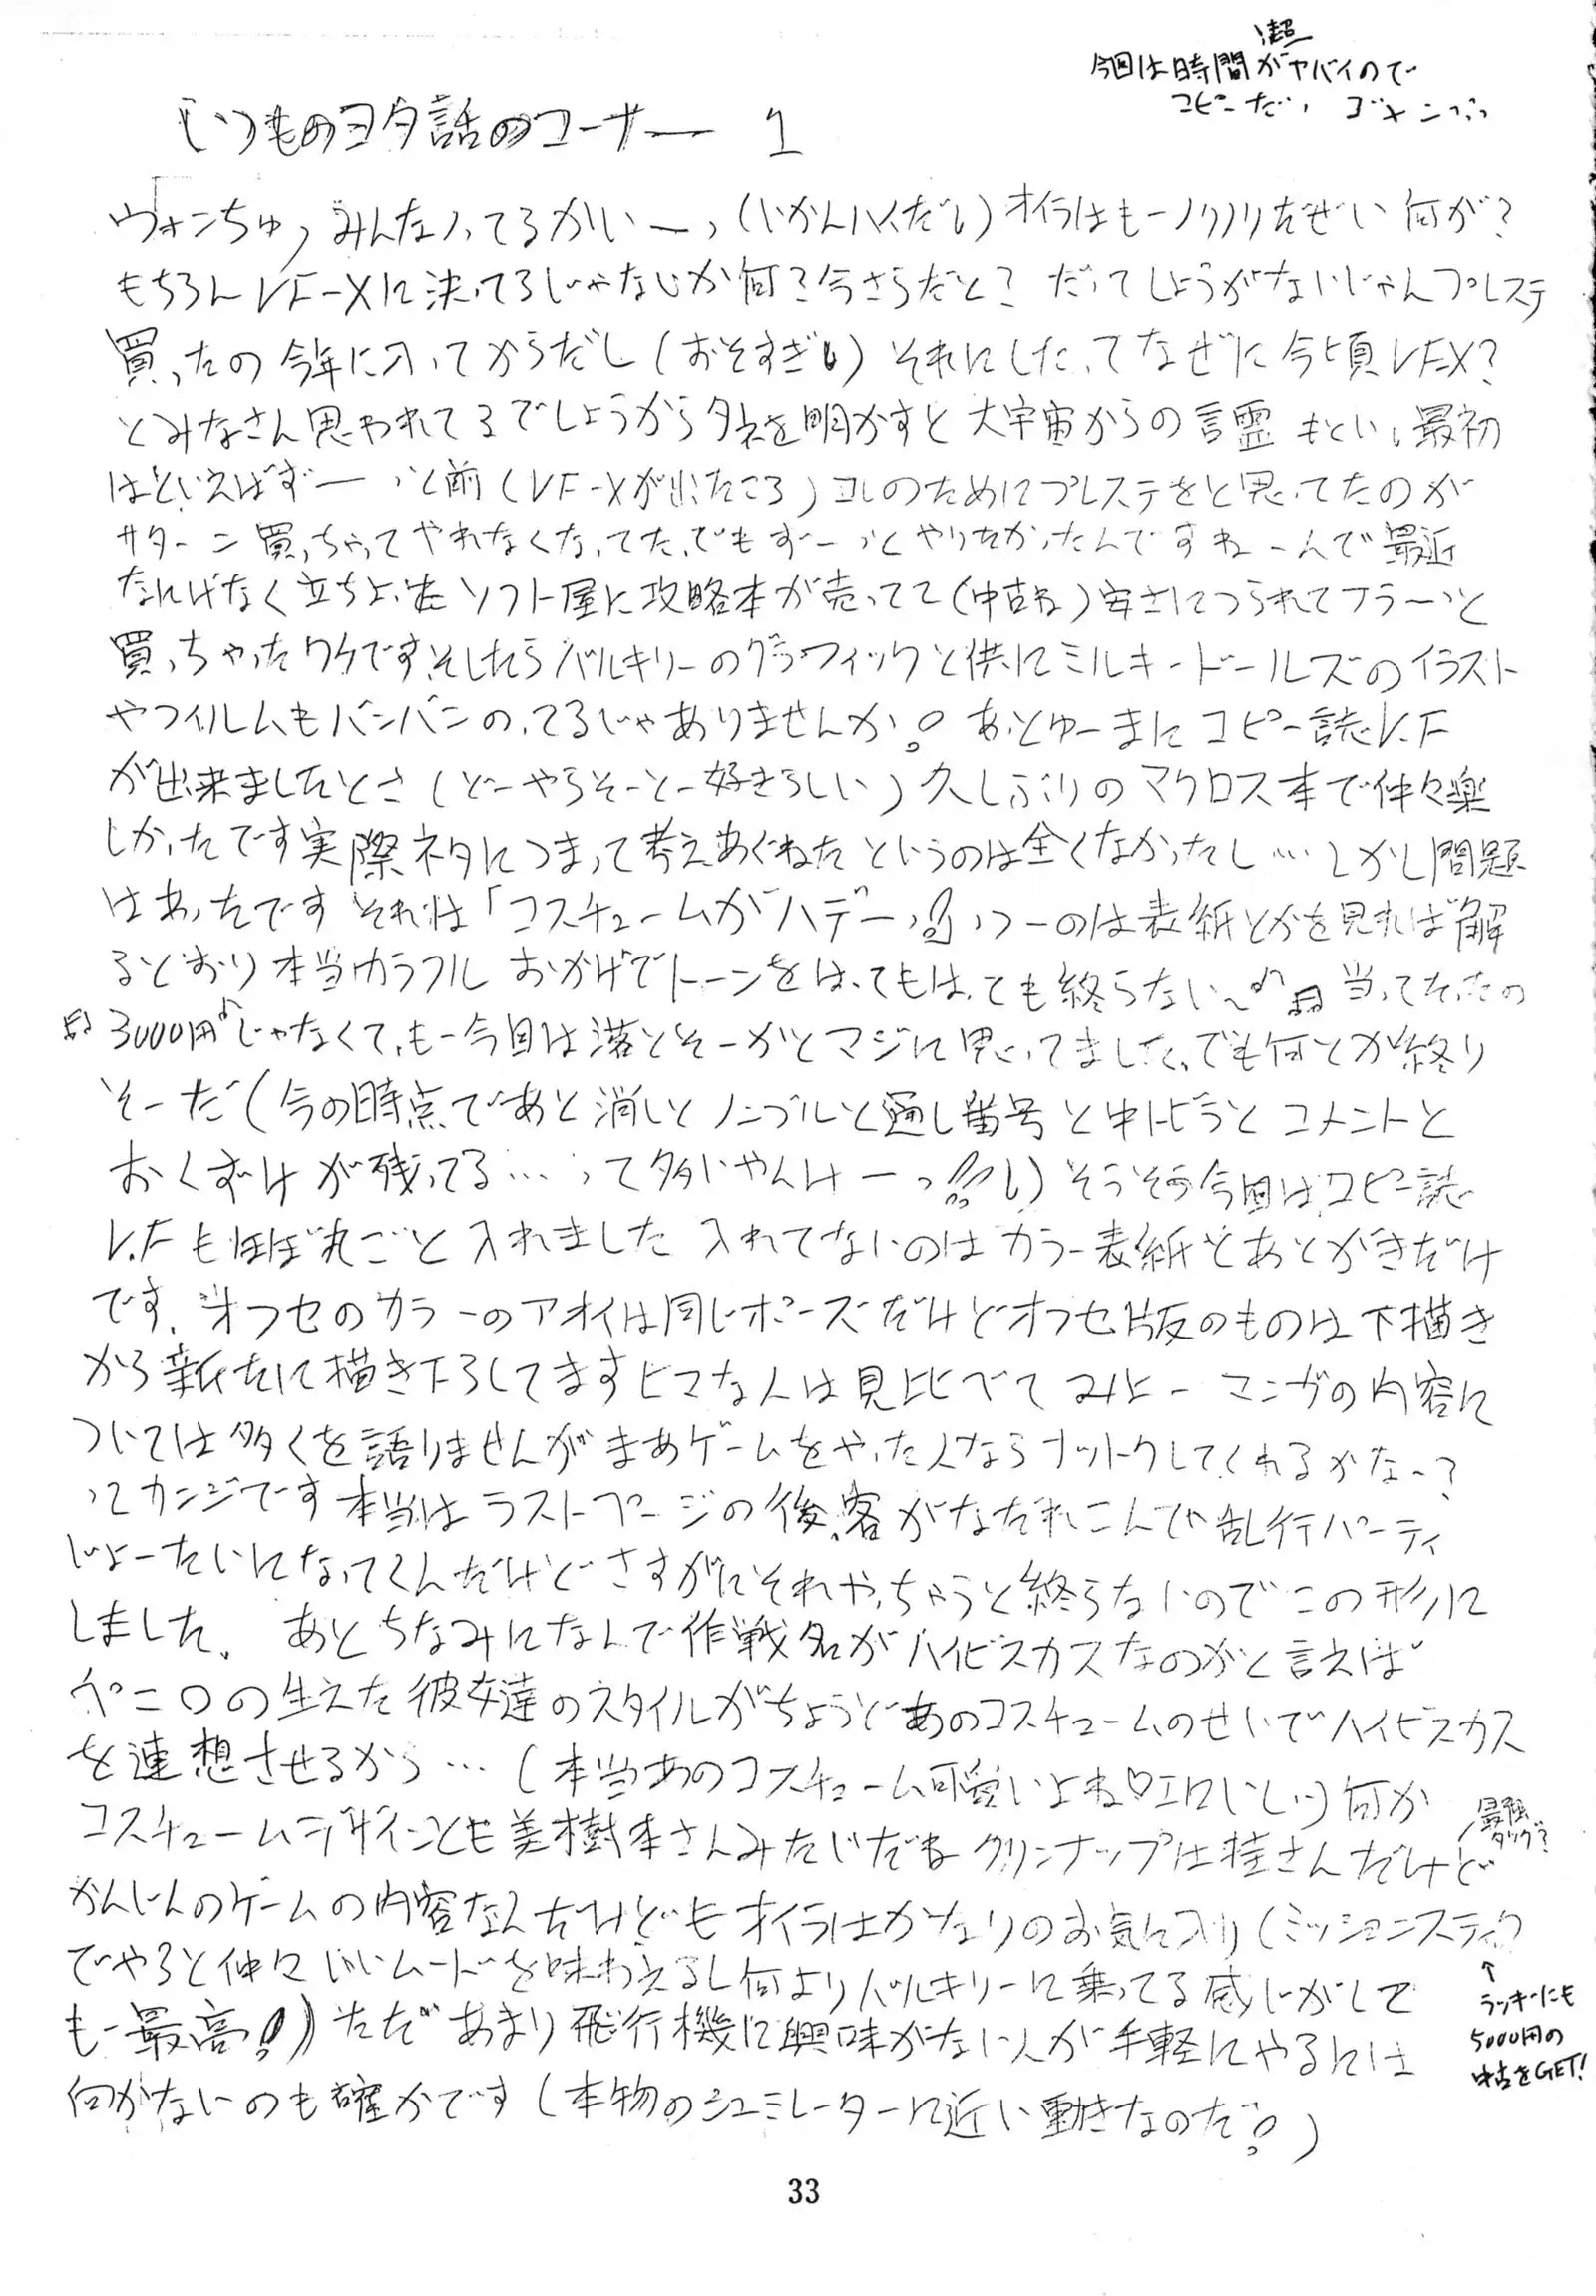 今回は時間が超ヤバイので
コピーだ、ゴメンっっ
いつものヨタ話のコーナー 1
ウォンちゅっみんなノってるかいーっ(いかんハイだし)オイラはもーノリノリだぜい 何が?
もちろんVF-Xに決ってるじゃないか何?今さらだと? だってしょうがないじゃんプレステ
買ったの今年に入ってからだし(おそすぎじ)それにしたってなぜに今頃VF-X?
とみなさん思われてるでしょうからタネを明かすと大宇宙からの言霊 もとい、最初
はといえばずーーっと前(VF-Xが出たころ)コレのためにプレステをと思ってたのが
サターン買っちゃってやれなくなってた、でもずーっとやりたかったんですねーんで最近
なにげなく立ちよったソフト屋に攻略本が売ってて(中古ね)安さにつられてフラーっと
買っちゃったワケです、そしたらバルキリーのグラフィックと供にミルキードールズのイラスト
やフィルムもバンバンのってるじゃありませんか!あっとゆーまにコピー誌V.F
が出来ましたとさ(どーやらそーとー好きらしい)久しぶりのマクロス本で仲々楽
しかったです実際ネタにつまって考えあぐねたというのは全くなかったし…しかし問題
はあったです それは「コスチュームがハデーっ!」っつーのは表紙とかを見れば解
るとおり本当カラフル おかげでトーンをはってもはっても終らない〜♪♫ 当ってたったの
♫3000円♪じゃなくて、もー今回は落とそーかとマジに思ってました、でも何とか終り
そーだ(今の時点であと消しとノンブルと通し番号と中トビラとコメントと
おくずけが残ってる…って多いやんけーっ!!し)そうそう今回はコピー誌
V.Fもほぼ丸ごと入れました 入れてないのはカラー表紙とあとがきだけ
です、オフセのカラーのアオイは同じポーズだけどオフセ版のものは下描き
から新たに描き下ろしてますヒマな人は見比べてみよー マンガの内容に
ついては多くを語りませんがまあゲームをやった人ならナットクしてくれるかなー?
ってカンジです本当はラストページの後、客がなだれこんでや乱行パーティ
じょーたいになってくんだけどさすがにそれやっちゃうと終らないのでこの形に
しました。 あとちなみになんで作戦名がハイビスカスなのかと言えば
ペニ○の生えた彼女達のスタイルがちょうどあのコスチュームのせいでハイビスカス
を連想させるから…(本当あのコスチューム可愛いよね♡エロいし)何か
コスチュームデザインとも美樹本さんみたいだねクリンナップは桂さんだけど
最強タッグ?
かんじんのゲームの内容なんだけどもオイラはかなりのお気に入り(ミッションスティック
でやると仲々いいムードを味わえるし何よりバルキリーに乗ってる感じがして
もー最高!)ただあまり飛行機に興味がない人が手軽にやるには
↑ラッキーにも
5000円の
中古をGET!
向かないのも確かです(本物のシュミレーターに近い動きなのだ!)
33